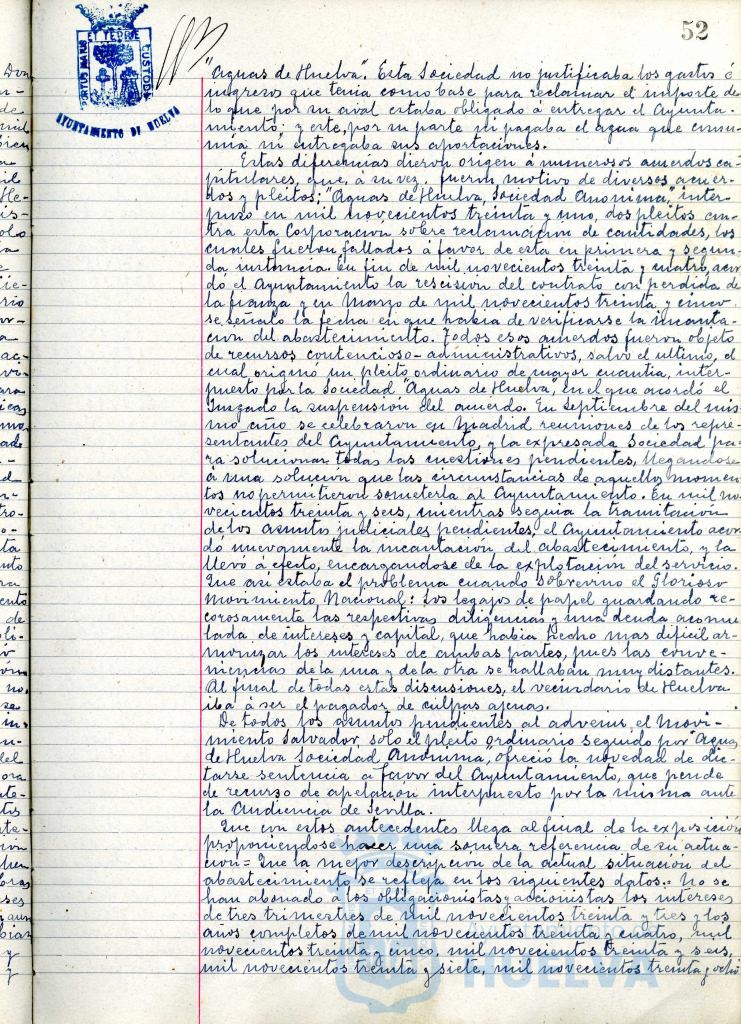 52
PORTUS MARIS ET TERRE CUSTODIA
AYUNTAMIENTO DE HUELVA
"Aguas de Huelva". Esta Sociedad no justificaba los gastos é
ingresos que tenia como base para reclamar el importe de
lo que por su aval estaba obligado á entregar el Ayunta-
miento; y este, por su parte ni pagaba el agua que consu-
mia ni entregaba sus aportaciones.
Estas diferencias dieron origen á numerosos acuerdos ca-
pitulares, que, á su vez, fueron motivo de diversos acuer-
dos y pleitos; "Aguas de Huelva, Sociedad Anonima", inter-
puso en mil novecientos treinta y uno, dos pleitos con-
tra esta Corporacion sobre reclamacion de cantidades, los
cuales fueron fallados á favor de esta en primera y segun-
da instancia. En fin de mil novecientos treinta y cuatro, acor-
dó el Ayuntamiento la rescision del contrato con perdida de
la fianza y en Marzo de mil novecientos treinta y cinco
se señaló la fecha en que habia de verificarse la incauta-
cion del abastecimiento. Todos esos acuerdos fueron objeto
de recursos contencioso-administrativos, salvo el ultimo, el
cual originó un pleito ordinario de mayor cuantia, inter-
puesto por la Sociedad "Aguas de Huelva", en el que acordó el
Juzgado la suspensión del acuerdo. En Septiembre del mis-
mo año se celebraron en Madrid reuniones de los repre-
sentantes del Ayuntamiento, y la expresada Sociedad pa-
ra solucionar todas las cuestiones pendientes, llegandose
á una solución que las circunstancias de aquellos momen-
tos no permitieron someterla al Ayuntamiento. En mil no-
vecientos treinta y seis, mientras seguia la tramitacion
de los asuntos judiciales pendientes, el Ayuntamiento acor-
dó nuevamente la incautacion del abastecimiento, y la
llevó á efecto, encargandose de la explotacion del servicio.
Que asi estaba el problema cuando sobrevino el Glorioso
Movimiento Nacional: Los legajos de papel guardando re-
corosamente las respectivas diligencias y una deuda acomu-
lada de intereses y capital, que habia hecho mas dificil ar-
monizar los intereses de ambas partes, pues las conve-
niencias de la una y de la otra se hallaban muy distantes.
Al final de todas estas discusiones, el vecindario de Huelva
iba á ser el pagador de culpas ajenas.
De todos los asuntos pendientes al advenir el Movi-
miento Salvador, solo el pleito ordinario seguido por "Aguas
de Huelva Sociedad Anonima", ofreció la novedad de dic-
tarse sentencia a favor del Ayuntamiento, que pende
de recurso de apelacion interpuesto por la misma ante
la Audiencia de Sevilla.
Que con estos antecedentes llega al final de la exposición
proponiendose hacer una somera referencia de su actua-
cion = Que la mejor descripcion de la actual situación del
abastecimiento se refleja en los siguientes datos:= No se
han abonado á los obligacionistas y accionistas los intereses
de tres trimestres de mil novecientos treinta y tres y los
años completos de mil novecientos treinta y cuatro, mil
novecientos treinta y cinco, mil novecientos treinta y seis,
mil novecientos treinta y siete, mil novecientos treinta y ocho
HUELVA